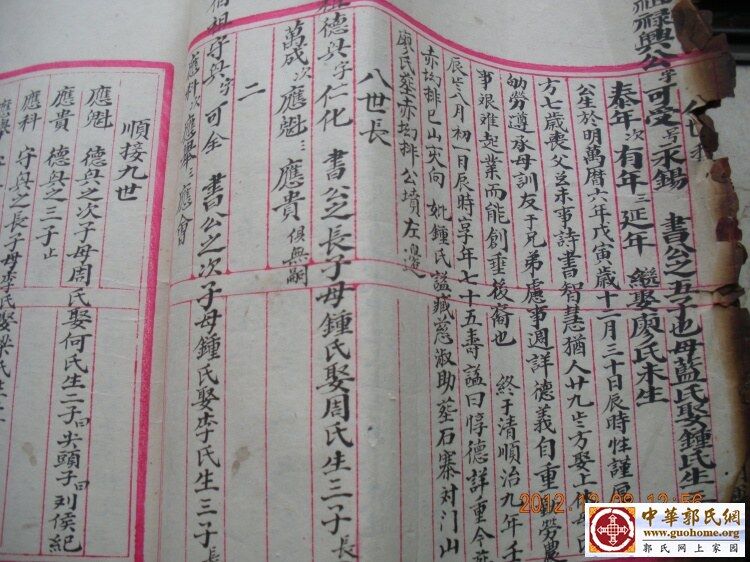 祖祿興公字可受号永錫 書公之五子也母藍氏娶鍾氏生
泰年次有年三延年 繼娶廖氏未生
公生於明萬曆六年戊寅歲十二月三十日辰時性謹
方七歲喪父 未事詩書智慧猶人廿九 方娶上
劬勞遵承母訓友于兄弟處事週詳德義自重勤勞農
事艱难起業而能創垂後裔也 終于清順治九年壬
辰 八月初一日辰時享年七十五壽謚曰惇德詳重今
赤坳排巳山 向 妣鍾氏謚 淑助塟石寨对门山
廖氏墓赤坳排公墳左邉
八世長
祖德興字仁化 書公之長子母鍾氏娶周氏生三子長
萬成次應魁三應貴 俱無嗣
二
伯祖守興字可全 書公之次子母鍾氏娶李氏生三子長
應科次應舉三應會
順接九世
應魁 德興之次子母周氏娶何氏生二子曰 頭子曰列侯紀
應貴 德興之三子止
應科 守興之長子母李氏娶梁氏生二
2012.12.02
中華郭氏網
www.guohome.org
郭氏网上家园